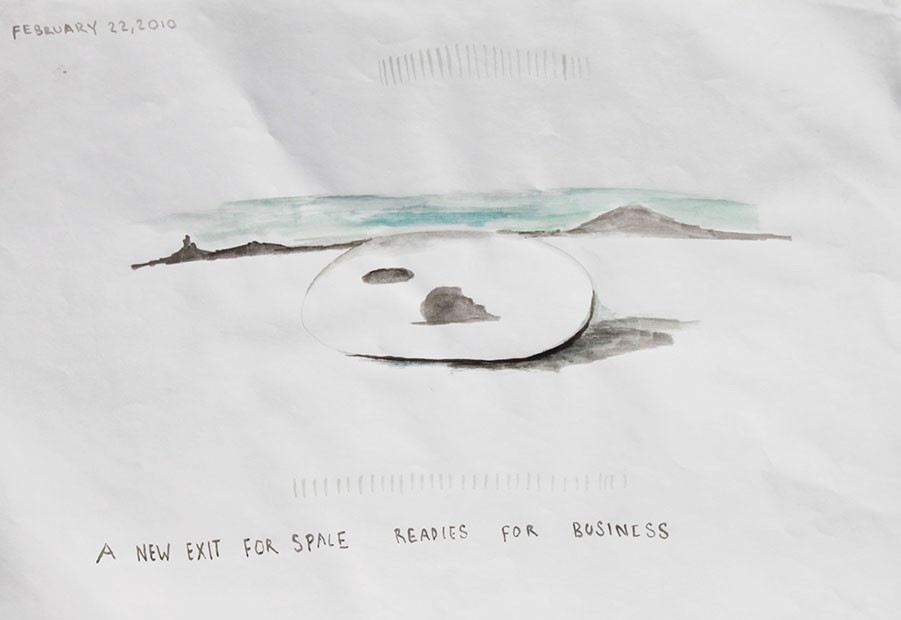 FEBRUARY 22, 2010
A NEW EXIT FOR SPALE READIES FOR BUSINESS